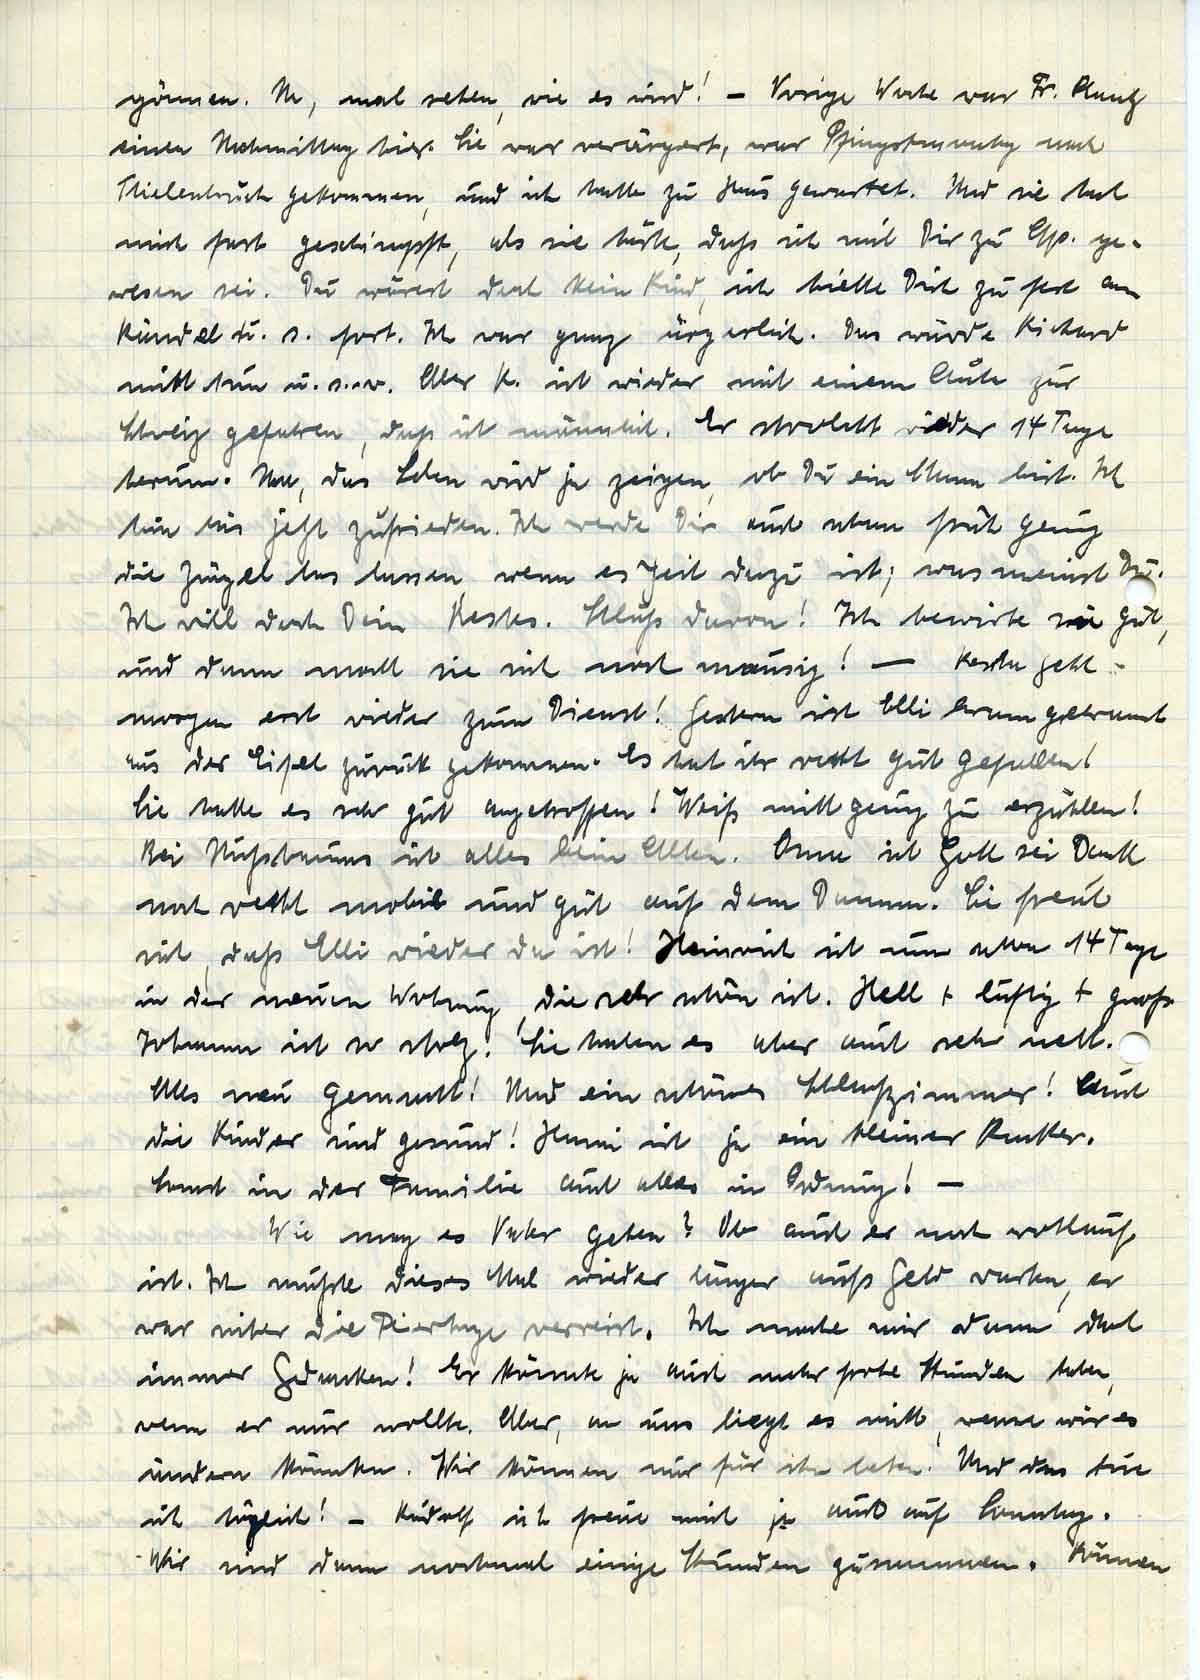 gönnen. Na, mal sehen, wie es wird! – Vorige Woche war Fr.
einen Nachmittag hier. Sie war verärgert, war Pfingstsonntag nach
Thielenbruch gekommen, und ich hatte zu Haus gewartet. Und sie hat
mich fast geschimpft, als sie hörte, daß ich mit Dir zu Ess. ge-
wesen sei. Du wärest doch kein Kind, ich hielte Dich zu fest am
Bändel u. s. fort. Ich war ganz ärgerlich. Das würde Richard
nicht tun u.s.w. Aber R. ist wieder mit einem Auto zur
Schweiz gefahren, das ist männlich. Er strolcht wieder 14 Tage
herum. Na, das Leben wird ja zeigen, ob Du ein Mann bist. Ich
bin bis jetzt zufrieden. Ich werde Dir auch schon früh genug
die Zügel los lassen wenn es Zeit dazu ist; was meinst Du.
Ich will doch Dein Bestes. Schluß davon! Ich bewirte sie gut,
und dann macht sie sich noch mausig! – geht
morgen erst wieder zum Dienst! Gestern ist Elli braun gebrannt
aus der Eifel zurück gekommen. Es hat ihr recht gut gefallen!
Sie hatte es sehr gut angetroffen! Weiß nicht genug zu erzählen!
Bei Nußbaums ist alles beim Alten. Oma ist Gott sei Dank
noch recht mobil und gut auf dem Damm. Sie freut
sich, daß Elli wieder da ist! Heinrich ist nun schon 14 Tage
in der neuen Wohnung, die sehr schön ist. Hell + luftig + groß
Johann ist so stolz! Sie haben es aber auch sehr nett.
Alles neu gemacht! Und ein schönes Schlafzimmer! Auch
die Kinder sind gesund! Hanni ist ja ein kleiner Racker.
Sonst in der Familie auch alles in Ordnung! –
Wie mag es Vater gehen? Ob auch er noch wohlauf
ist. Ich mußte dieses Mal wieder länger aufs Geld warten, er
war sicher die Feiertage verreist. Ich mache mir dann doch
immer Gedanken! Er könnte ja auch mehr frohe Stunden haben,
wenn er nur wollte. Aber, an uns liegt es nicht, wenn wir es
ändern könnten. Wir können nur für ihn beten! Und das tue
ich täglich! – Rudolf ich freue mich ja auch auf Sonntag.
Wir sind dann nochmal einige Stunden zusammen. Können